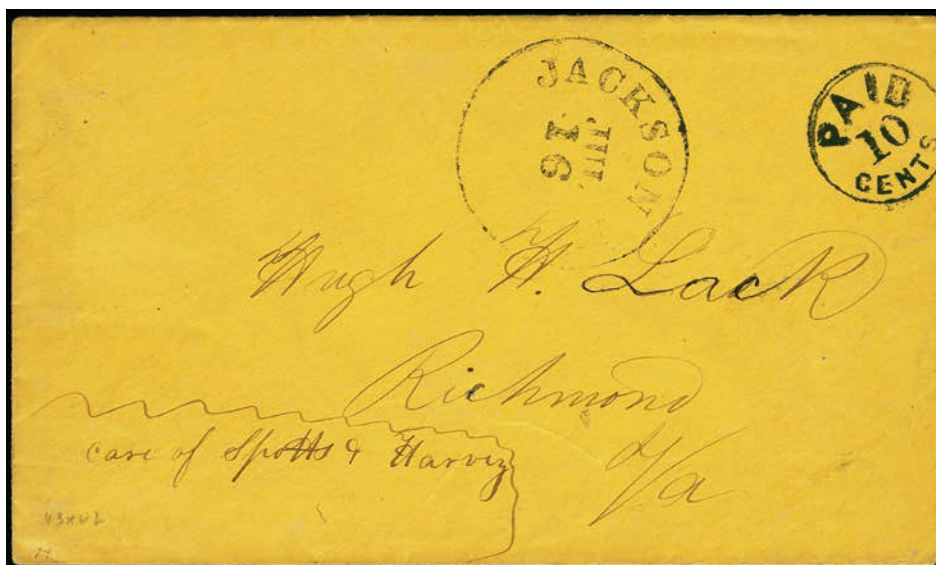 JACKSON
16
PAID
10
CENTS
Hugh H. Lack
Richmond
Va
care of Spotts & Harvey
43XU2